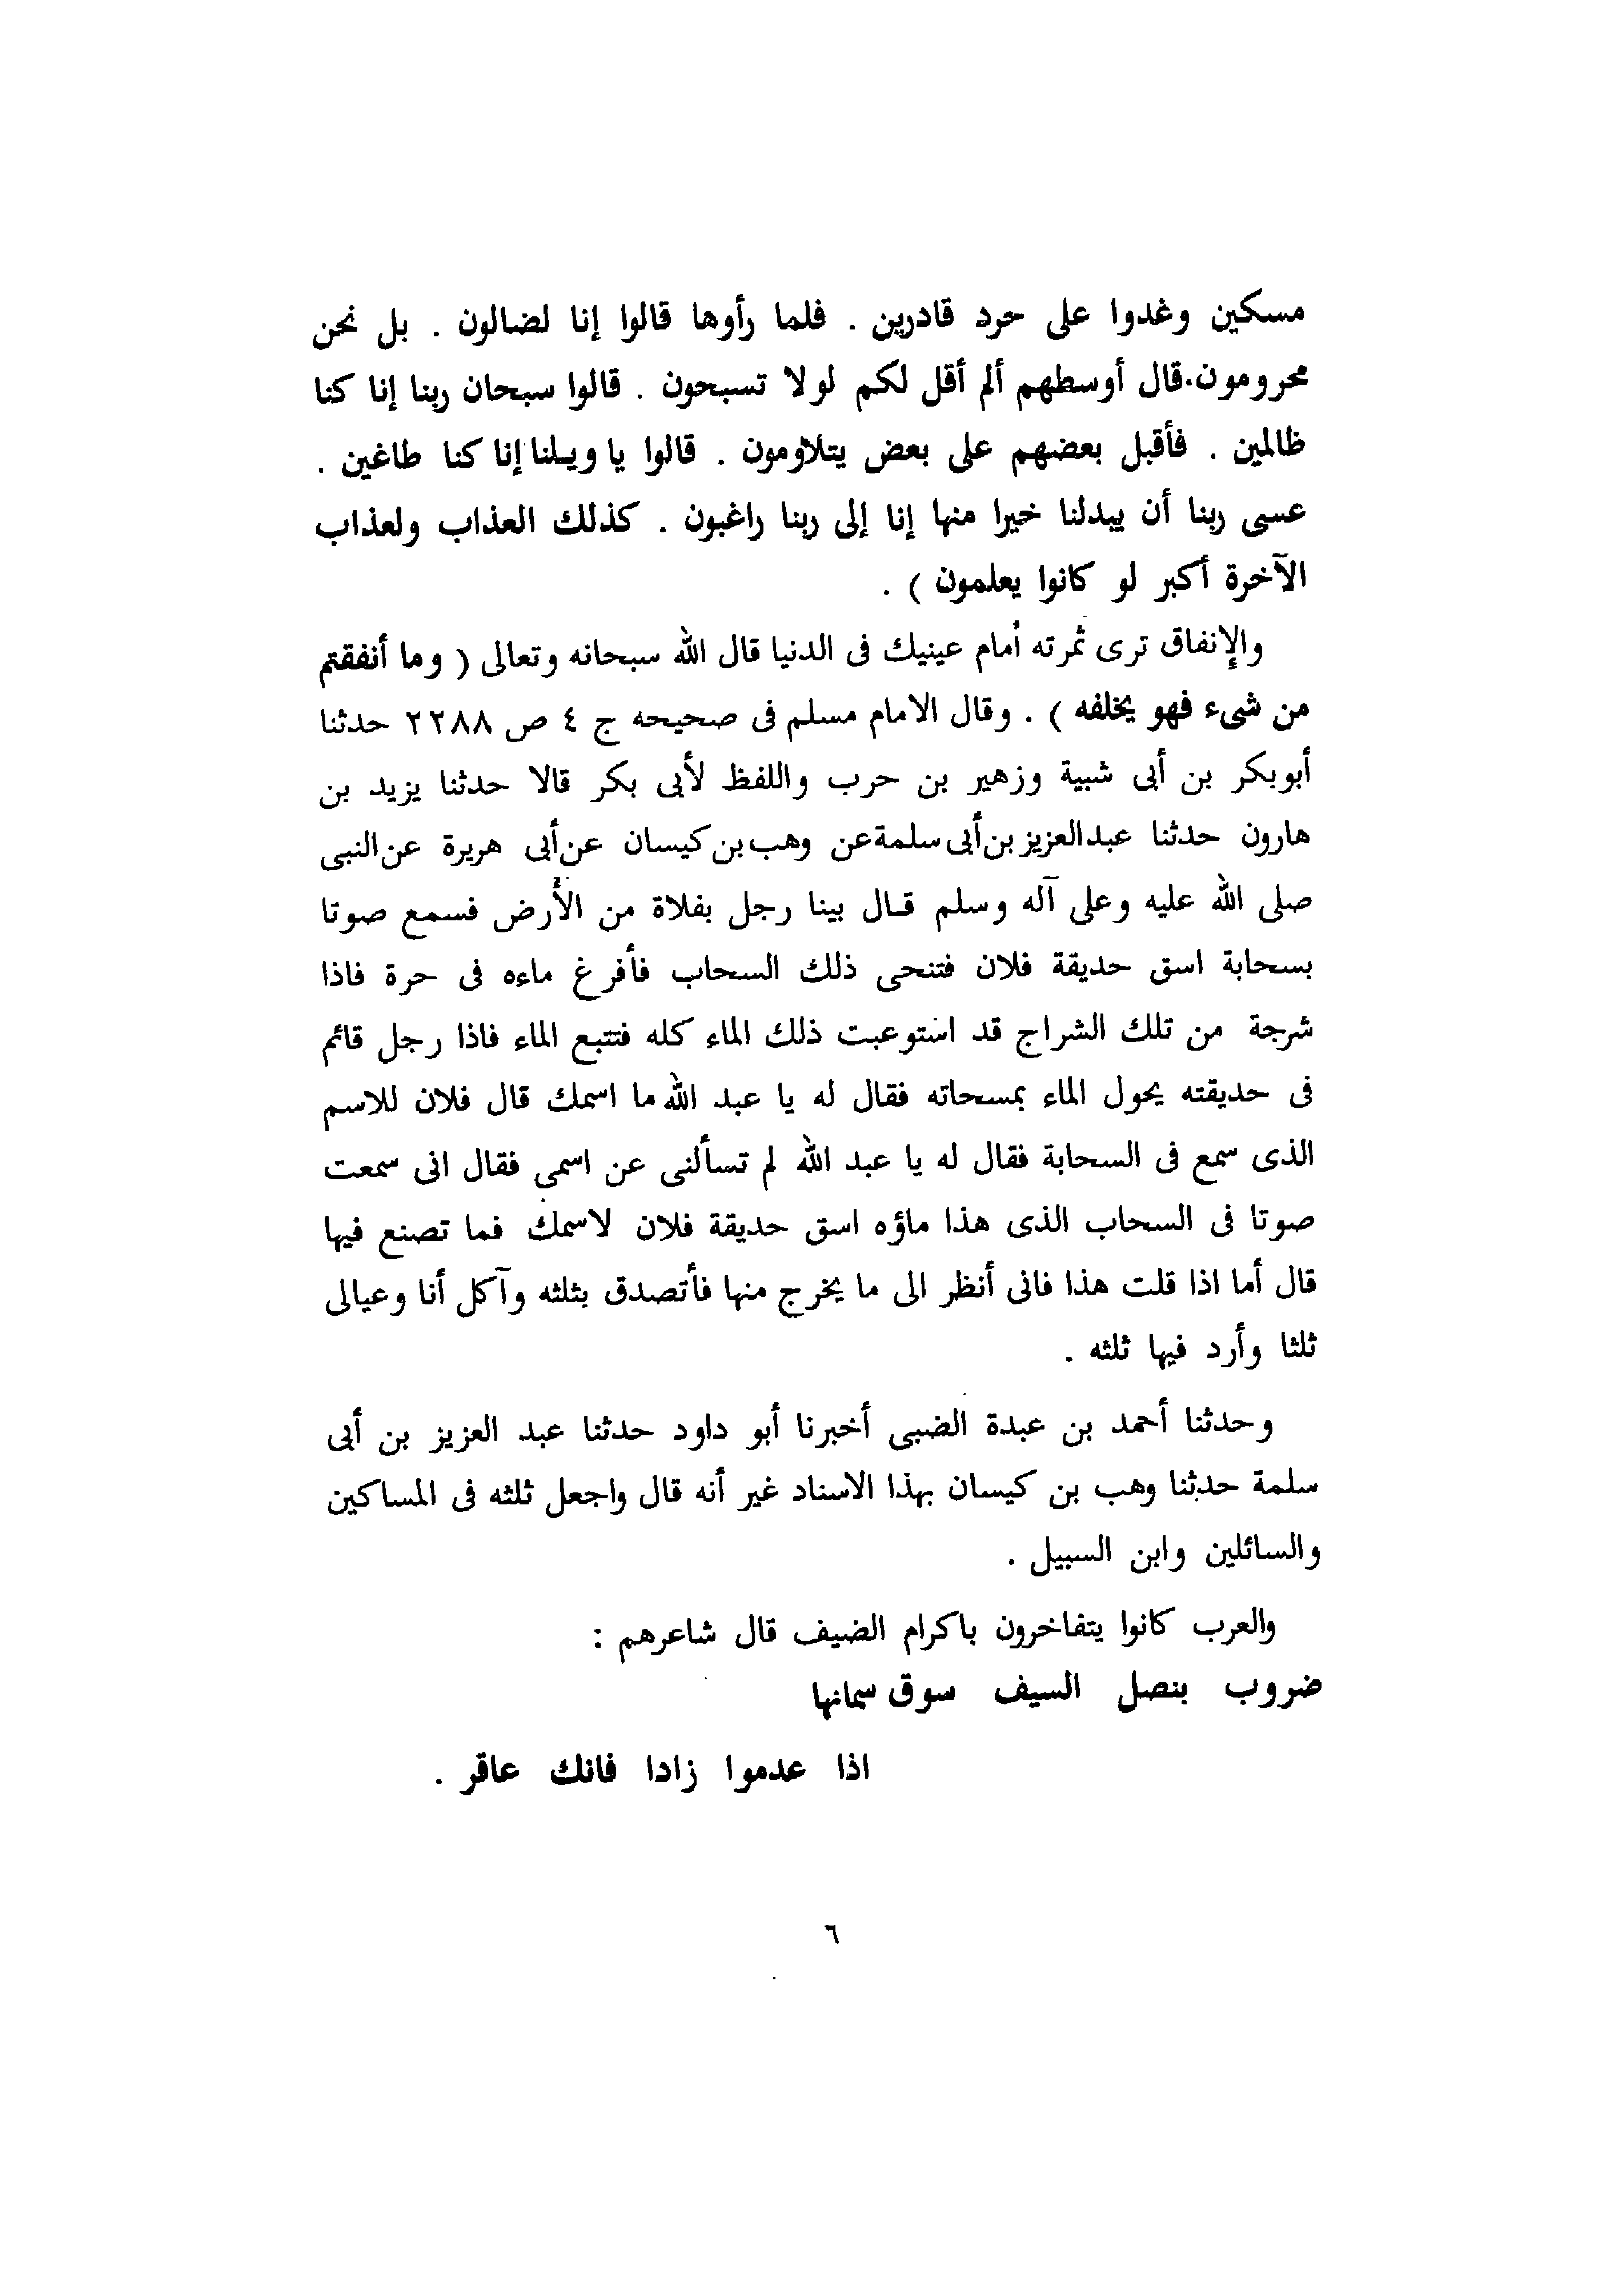 مسكين وغدوا على حرد قادرين . فلما رأوها قالوا إنا لضالون . بل نحن
محرومون.قال أوسطهم ألم أقل لكم لولا تسبحون . قالوا سبحان ربنا إنا كنا
ظالمين . فأقبل بعضهم على بعض يتلاومون . قالوا يا ويلنا إنا كنا طاغين .
عسى ربنا أن يبدلنا خيرا منها إنا إلى ربنا راغبون . كذلك العذاب ولعذاب
الآخرة أكبر لو كانوا يعلمون ) .
والإنفاق ترى ثمرته أمام عينيك فى الدنيا قال الله سبحانه وتعالى ( وما أنفقتم
من شىء فهو يخلفه ) . وقال الامام مسلم فى صحيحه ج ٤ ص ٢٢٨٨ حدثنا
أبوبكر بن أبى شيبة وزهير بن حرب واللفظ لأبى بكر قالا حدثنا يزيد بن
هارون حدثنا عبدالعزيز بن أبى سلمة عن وهب بن كيسان عن أبى هريرة عن النبى
صلى الله عليه وعلى آله وسلم قال بينا رجل بفلاة من الأرض فسمع صوتا
بسحابة اسق حديقة فلان فتنحى ذلك السحاب فأفرغ ماءه فى حرة فاذا
شرجة من تلك الشراج قد استوعبت ذلك الماء كله فتتبع الماء فاذا رجل قائم
فى حديقته يحول الماء بمسحاته فقال له يا عبد الله ما اسمك قال فلان للاسم
الذى سمع فى السحابة فقال له يا عبد الله لم تسألنى عن اسمى فقال انى سمعت
صوتا فى السحاب الذى هذا ماؤه اسق حديقة فلان لاسمك فما تصنع فيها
قال أما اذا قلت هذا فانى أنظر الى ما يخرج منها فأتصدق بثلثه وآكل أنا وعيالى
ثلثا وأرد فيها ثلثه .
وحدثنا أحمد بن عبدة الضبى أخبرنا أبو داود حدثنا عبد العزيز بن أبى
سلمة حدثنا وهب بن كيسان بهذا الاسناد غير أنه قال واجعل ثلثه فى المساكين
والسائلين وابن السبيل .
والعرب كانوا يتفاخرون باكرام الضيف قال شاعرهم :
ضروب بنصل السيف سوق سمانها
اذا عدموا زادا فانك عاقر .
٦